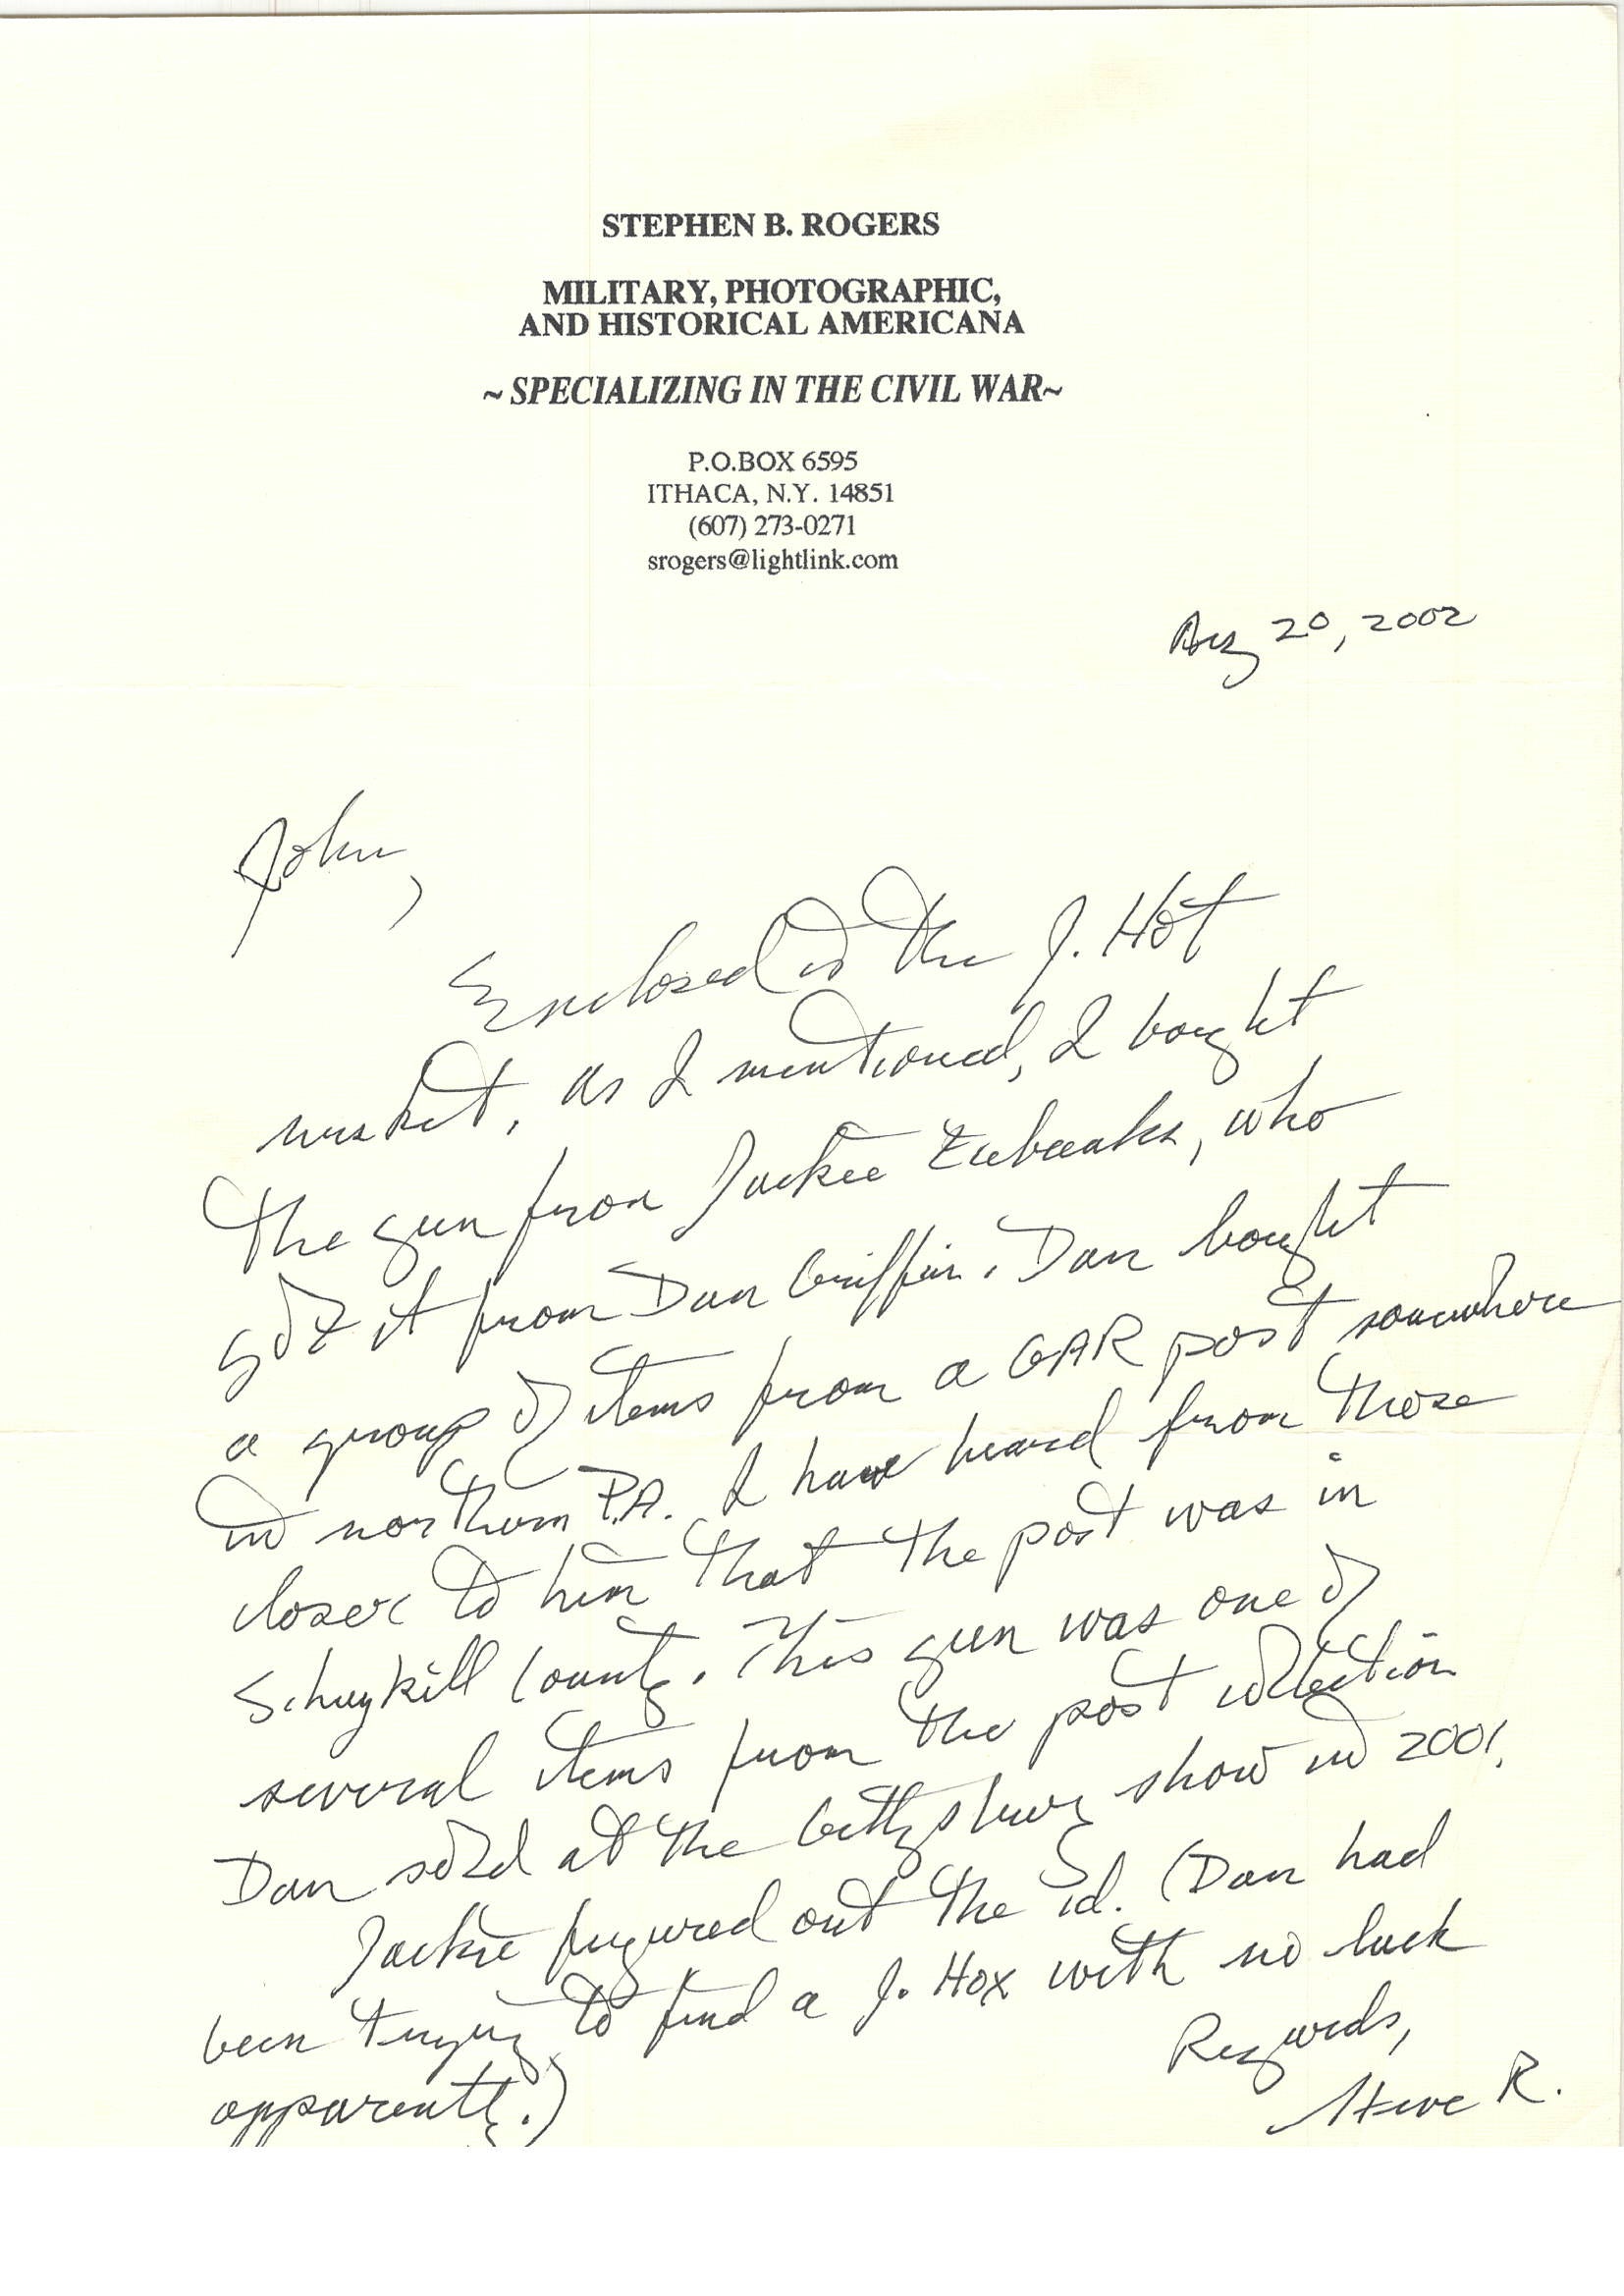 STEPHEN B. ROGERS
MILITARY, PHOTOGRAPHIC,
AND HISTORICAL AMERICANA
~SPECIALIZING IN THE CIVIL WAR~
P.O.BOX 6595
ITHACA, N.Y. 14851
(607) 273-0271
srogers@lightlink.com
Aug 20, 2002
John,
Enclosed is the J. Hot
musket. As I mentioned, I bought
the gun from Jackie Eubanks, who
got it from Dan Griffin. Dan bought
a group of items from a GAR post somewhere
in northern P.A. I have heard from those
closer to him that the post was in
Schuykill County. This gun was one of
several items from the post collection
Dan sold at the Gettysburg show in 2001.
Jackie figured out the id. (Dan had
been trying to find a J. Hox with no luck
apparently.)
Regards,
Steve R.